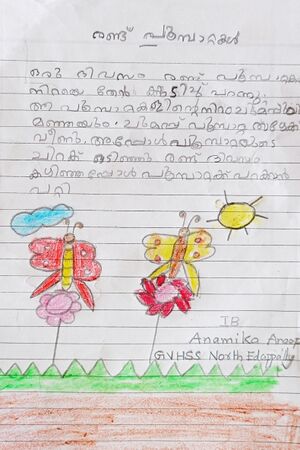 രണ്ട് പൂമ്പാറ്റകൾ
ഒരു ദിവസം രണ്ട് പൂമ്പാറ്റകൾ
നിറയെ തേൻ കുടിച്ച് പറന്നു.
ആ പൂമ്പാറ്റകളിന്റെനിറം ചുമപ്പും
മഞ്ഞയും. ചുമപ്പ് പൂമ്പാറ്റ താഴേക്ക്
വീണു. അപ്പോൾ പൂമ്പാറ്റയുടെ
ചിറക് ഒടിഞ്ഞു രണ്ട് ദിവസം
കഴിഞ്ഞപ്പോൾ പൂമ്പാറ്റക്ക് പറക്കാൻ
പറ്റി
IB
Anamika Anoop
GVHSS North Edappally